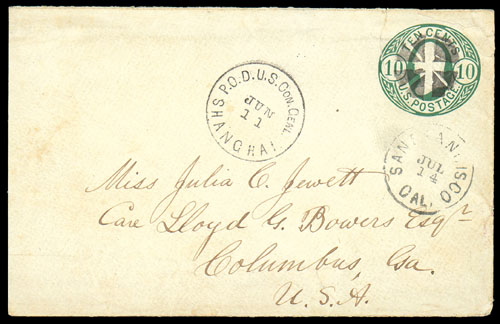 TEN CENTS
10 10
U.S. POSTAGE
SHANGHAI P.O.D.U.S. CON. GENL.
JUN
11
SAN FRANCISCO
JUL
14
CAL.
Miss Julia C. Jewett
Care Lloyd G. Bowers Esqr
Columbus, Ga.
U.S.A.